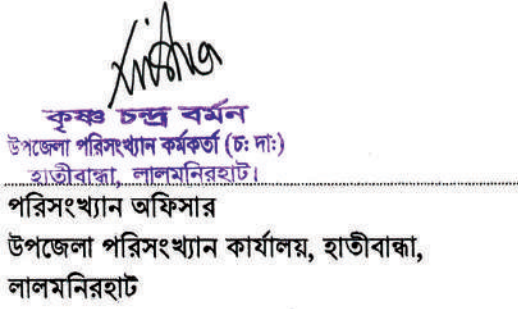 কৃষ্ণ চন্দ্র বর্মন
উপজেলা পরিসংখ্যান কর্মকর্তা (চ: দা:)
হাতীবান্ধা, লালমনিরহাট।
পরিসংখ্যান অফিসার
উপজেলা পরিসংখ্যান কার্যালয়, হাতীবান্ধা,
লালমনিরহাট